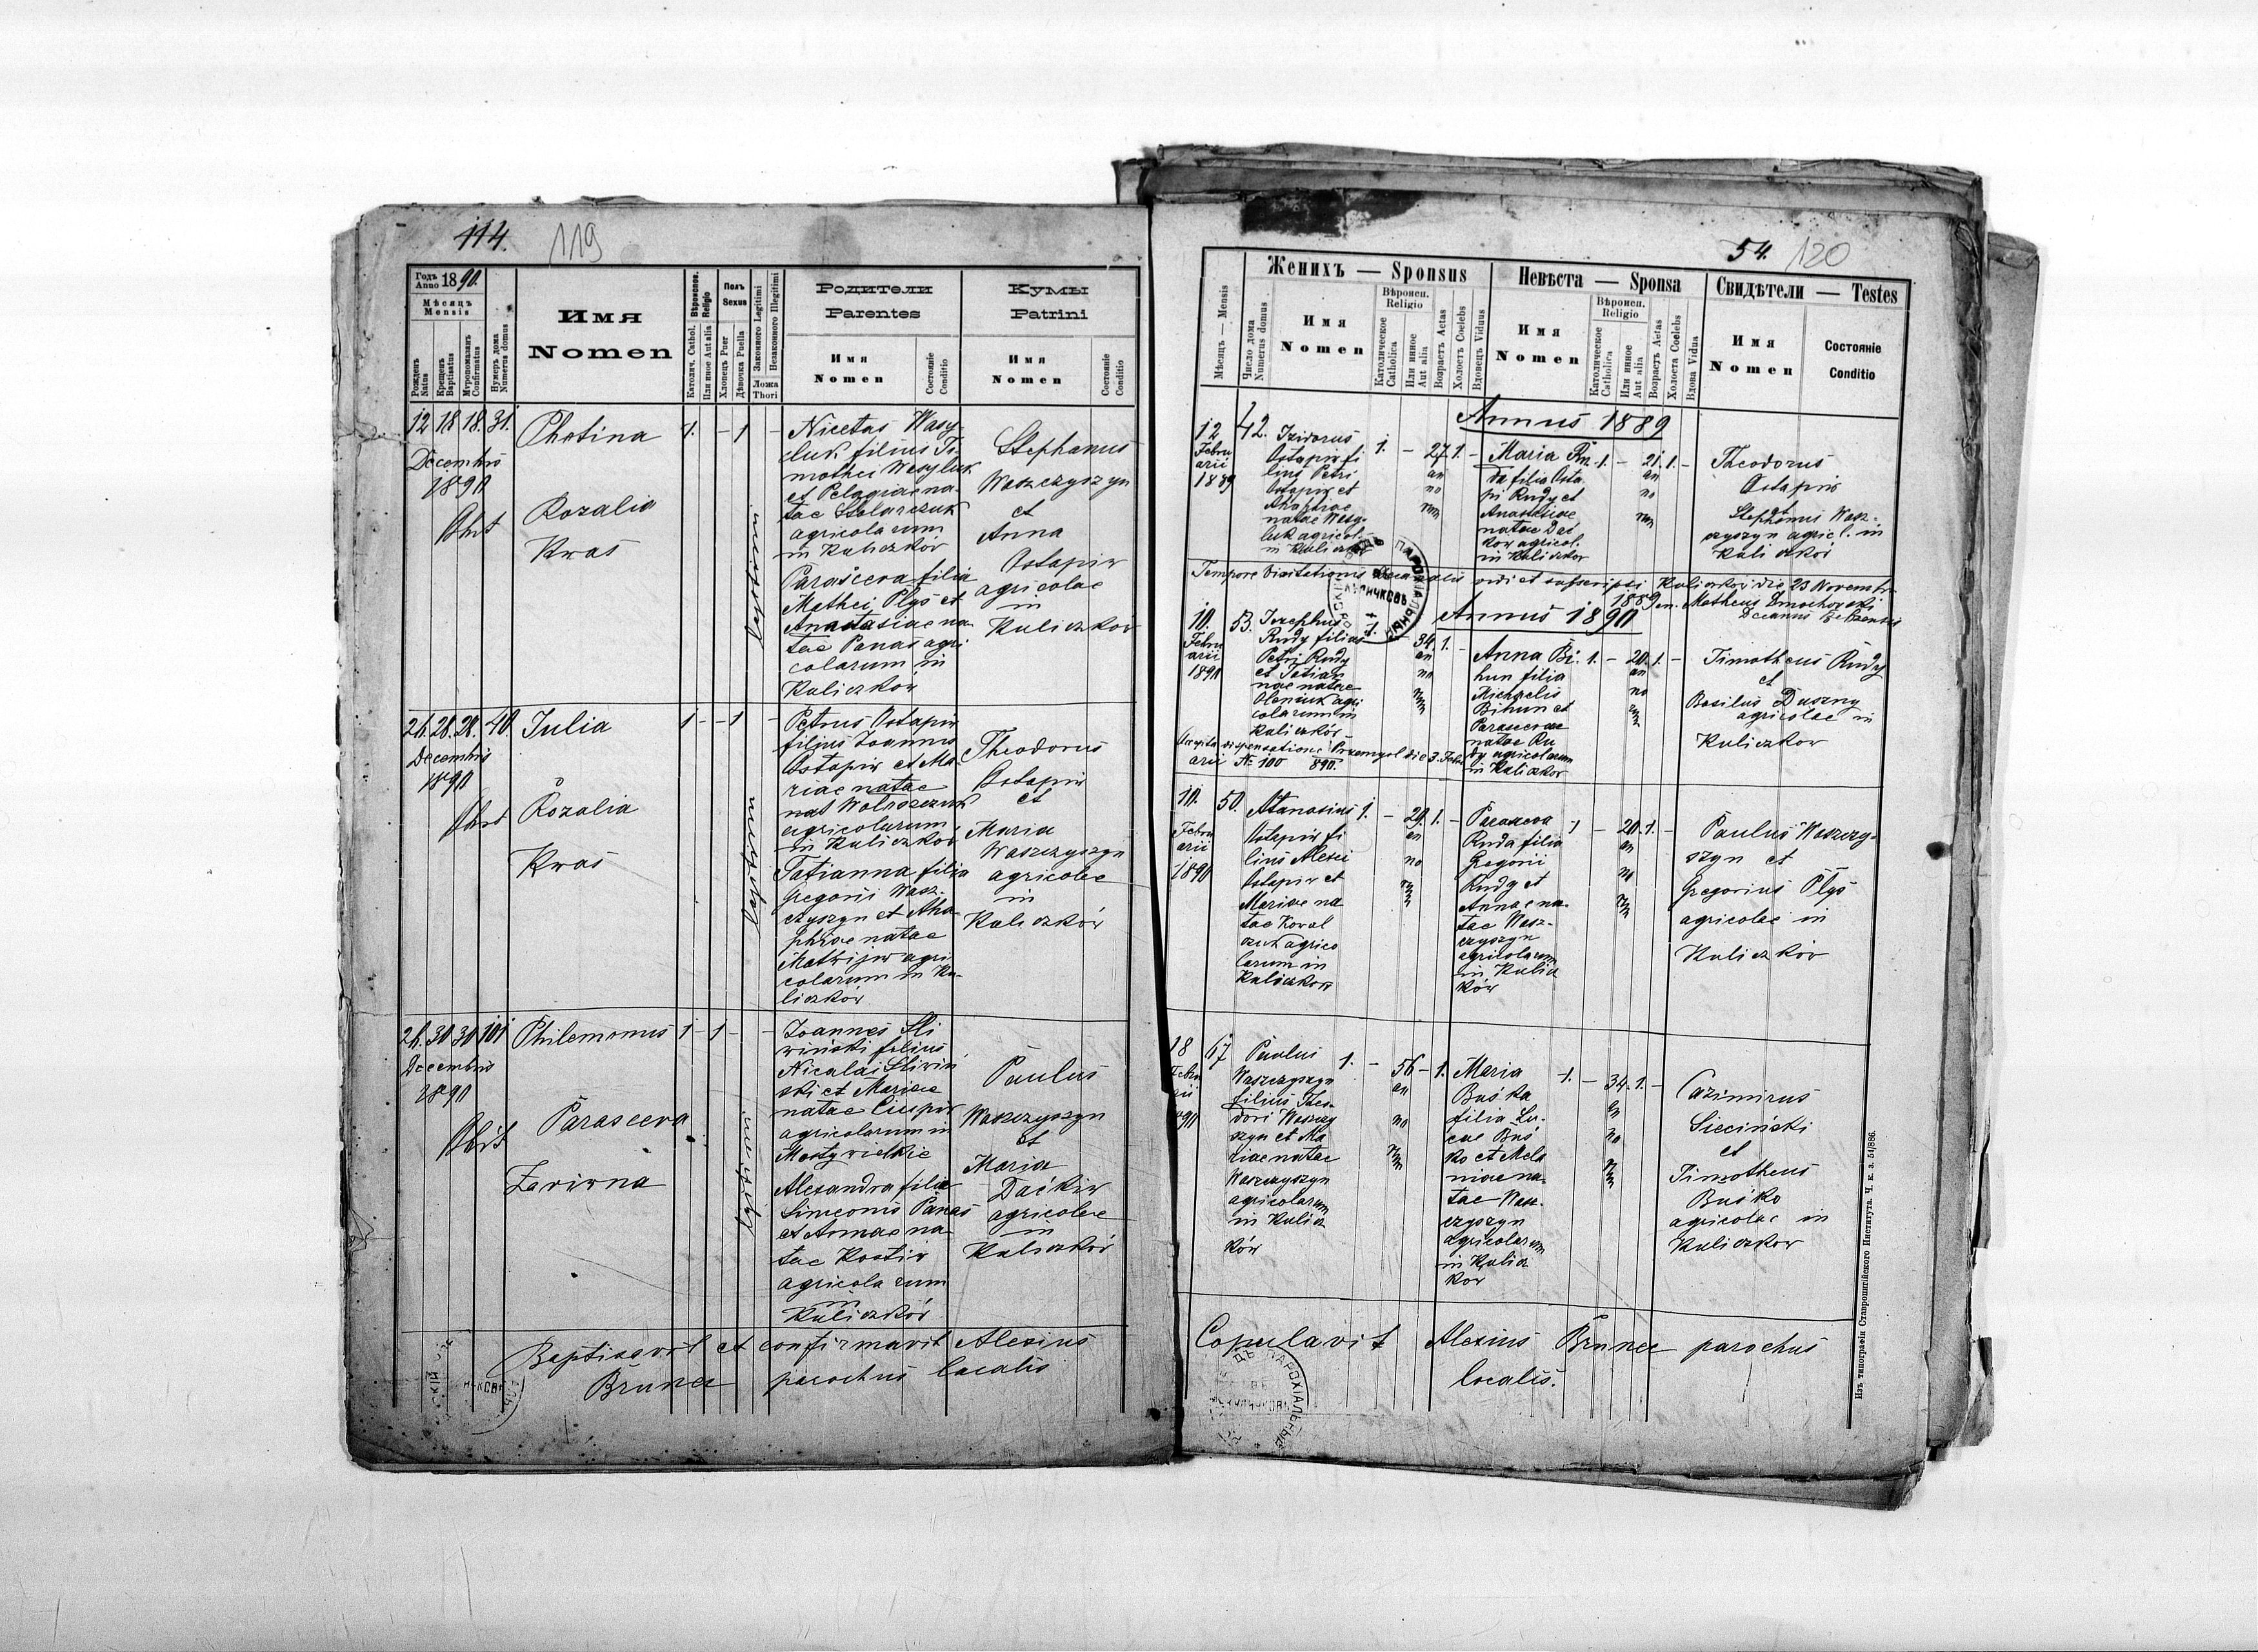 114. 119
Годъ Anno 1890.
Мѣсяцъ Mensis
Рожденъ Natus
Крещенъ Baptisatus
Мѵропомазанъ Confirmatus
Нумеръ дома Numerus domus
Имя
Nomen
Вѣроиспов. Religio
Католич. Cathol.
Или иное Aut alia
Полъ Sexus
Хлопецъ Puer
Дѣвочка Puella
Законного Legitimi
Незаконного Illegitimi
Ложа Thori
Родители
Parentes
Имя Nomen
Состояніе Conditio
Кумы
Patrini
Имя Nomen
Состояніе Conditio
12 18 18. 31.
Decembris
1890
Obst
Photina
Rozalia
Kwas
1. - 1 -
Nicetas Wasy
luk filius Ti-
mothei Wasyluk
et Pelagiae na-
tae Stolarczuk
agricolarum
in Kuliczków
Parasceva filia
Mathei Plys et
Anastasiae na-
tae Panas agri
colarum in
Kuliczków
Stephanus
Waszczyszyn
et
Anna
Ostapiw
agricolae
in
Kuliczkow
26. 28. 28. 40.
Decembris
1890
Obst
Julia
Rozalia
Kwas
1 - - 1 -
Petrus Ostapiw
filius Joannis
Ostapiw et Ma-
riae natae
nat Woloszczuk
agricolarum
in Kuliczków
Tatianna filia
Gregorii Wasz-
czyszyn et Aha-
phiae natae
Matwijiw agri
colarum in Ku-
liczków
Theodorus
Ostapiw
et
Maria
Waszczyszyn
agricolae
in
Kuliczków
26. 30 30 101
Decembris
1890
Obst
Philemonus
Parasceva
Zavirna
1 - 1 - -
Joannes Sli
wiński filius
Nicolai Sliwiń
ski et Mariae
natae Ciupiw
agricolarum in
Mosty wielkie
Alexandra filia
Simeonis Panas
et Annae na-
tae Kostiw
agricolarum
in
Kuliczków
Paulus
Waszczyszyn
et
Maria
Daćkiw
agricolae
in
Kuliczków
Baptisavit et confirmavit Alexius
Brunec parochus localis
54. 120
Мѣсяцъ — Mensis
Число дома Numerus domus
Женихъ — Sponsus
Имя
Nomen
Вѣроисп. Religio
Католическое Catholica
Или инное Aut alia
Возрастъ Aetas
Холостъ Coelebs
Вдовецъ Viduus
Невѣста — Sponsa
Имя
Nomen
Вѣроисп. Religio
Католическое Catholica
Или инное Aut alia
Возрастъ Aetas
Холоста Coelebs
Вдова Vidua
Свидѣтели — Testes
Имя
Nomen
Состояніе
Conditio
Annus 1889
12
Febru
arii
1889
42.
Izidorus
Ostapiw fi
lius Petri
Ostapiw et
Ahaphiae
natae Wasy-
luk agricol.
in Kuliczk
1. - 27 1. -
an
no
rum
Maria Ru-
da filia Osta
pi Rudy et
Anastasiae
natae Dać
kow agricol.
in Kuliczkow
1. - 21. 1. -
an
no
rum
Theodorus
Ostapiw
et
Stephanus Wasz-
czyszyn agricl. in
Kuliczków
Tempore Visitationis Decanalis vidi et subscripsi Kuliczków die 23 Novembr.
1889
Decanus
Annus 1890
10.
Febru
arii
1890
53.
Josephus
Rudy filius
Petri Rudy
et Tatian
nae natae
Oleniuk agri
colarum in
Kuliczków
34. 1. -
an
no
rum
Anna Bi-
hun filia
Michaelis
Bihun et
Parascevae
natae Ru
dy agricolarum
in Kuliczkow
1. - 20. 1. -
an
no
rum
Timotheus Rudy
et
Basilius Duszny
agricolae in
Kuliczkow
dispensatione Przemysl die 3. Febru
arii № 100 890.
10.
Febru
arii
1890
50.
Atanasius
Ostapiw fi
lius Alexei
Ostapiw et
Mariae na
tae Koval
czuk agrico
larum in
Kuliczkow
1. - 29. 1. -
an
no
rum
Parasceva
Ruda filia
Gregorii
Rudy et
Annae na-
tae Wasz-
czyszyn
agricolarum
in Kulicz
ków
1 - 20. 1. -
an
no
rum
Paulus Waszczy-
szyn et
Gregorius Plys
agricolae in
Kuliczków
18
Febru
arii
1890
67
Paulus
Waszczyszyn
filius Theo-
dori Waszczy
szyn et Ma
riae natae
Waszczyszyn
agricolarum
in Kulicz
ków
1. - 56 - 1.
an
no
rum
Maria
Buśka
filia Lu-
cae Buś
ko et Mela
niae na-
tae Wasz-
czyszyn
agricolarum
in Kulicz
kow
1. - 34. 1. -
an
no
rum
Cazimirus
Sieciński
et
Timotheus
Buśko
agricolae in
Kuliczkow
Copulavit Alexius Brunec parochus
localis.
Изъ типографіи Ставропигійского Института. Ч. к. з. 51/886.